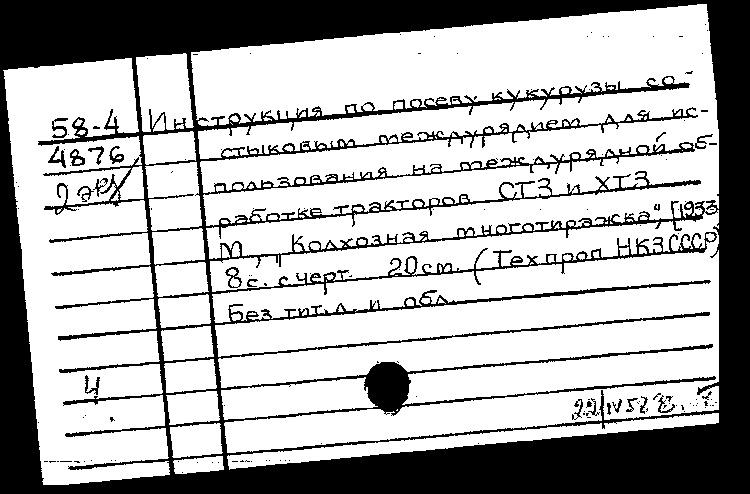 58-4 Инструкция по посеву кукурузы со-
4876 стыковым междурядием для ис-
2 экз пользования на междурядной об-
работке тракторов СТЗ и ХТЗ
М., "Колхозная многотиражка", [1933
8 с. с черт. 20 см. (Техпроп НКЗ СССР)
Без тит. л. и обл.
4
22/IV 58